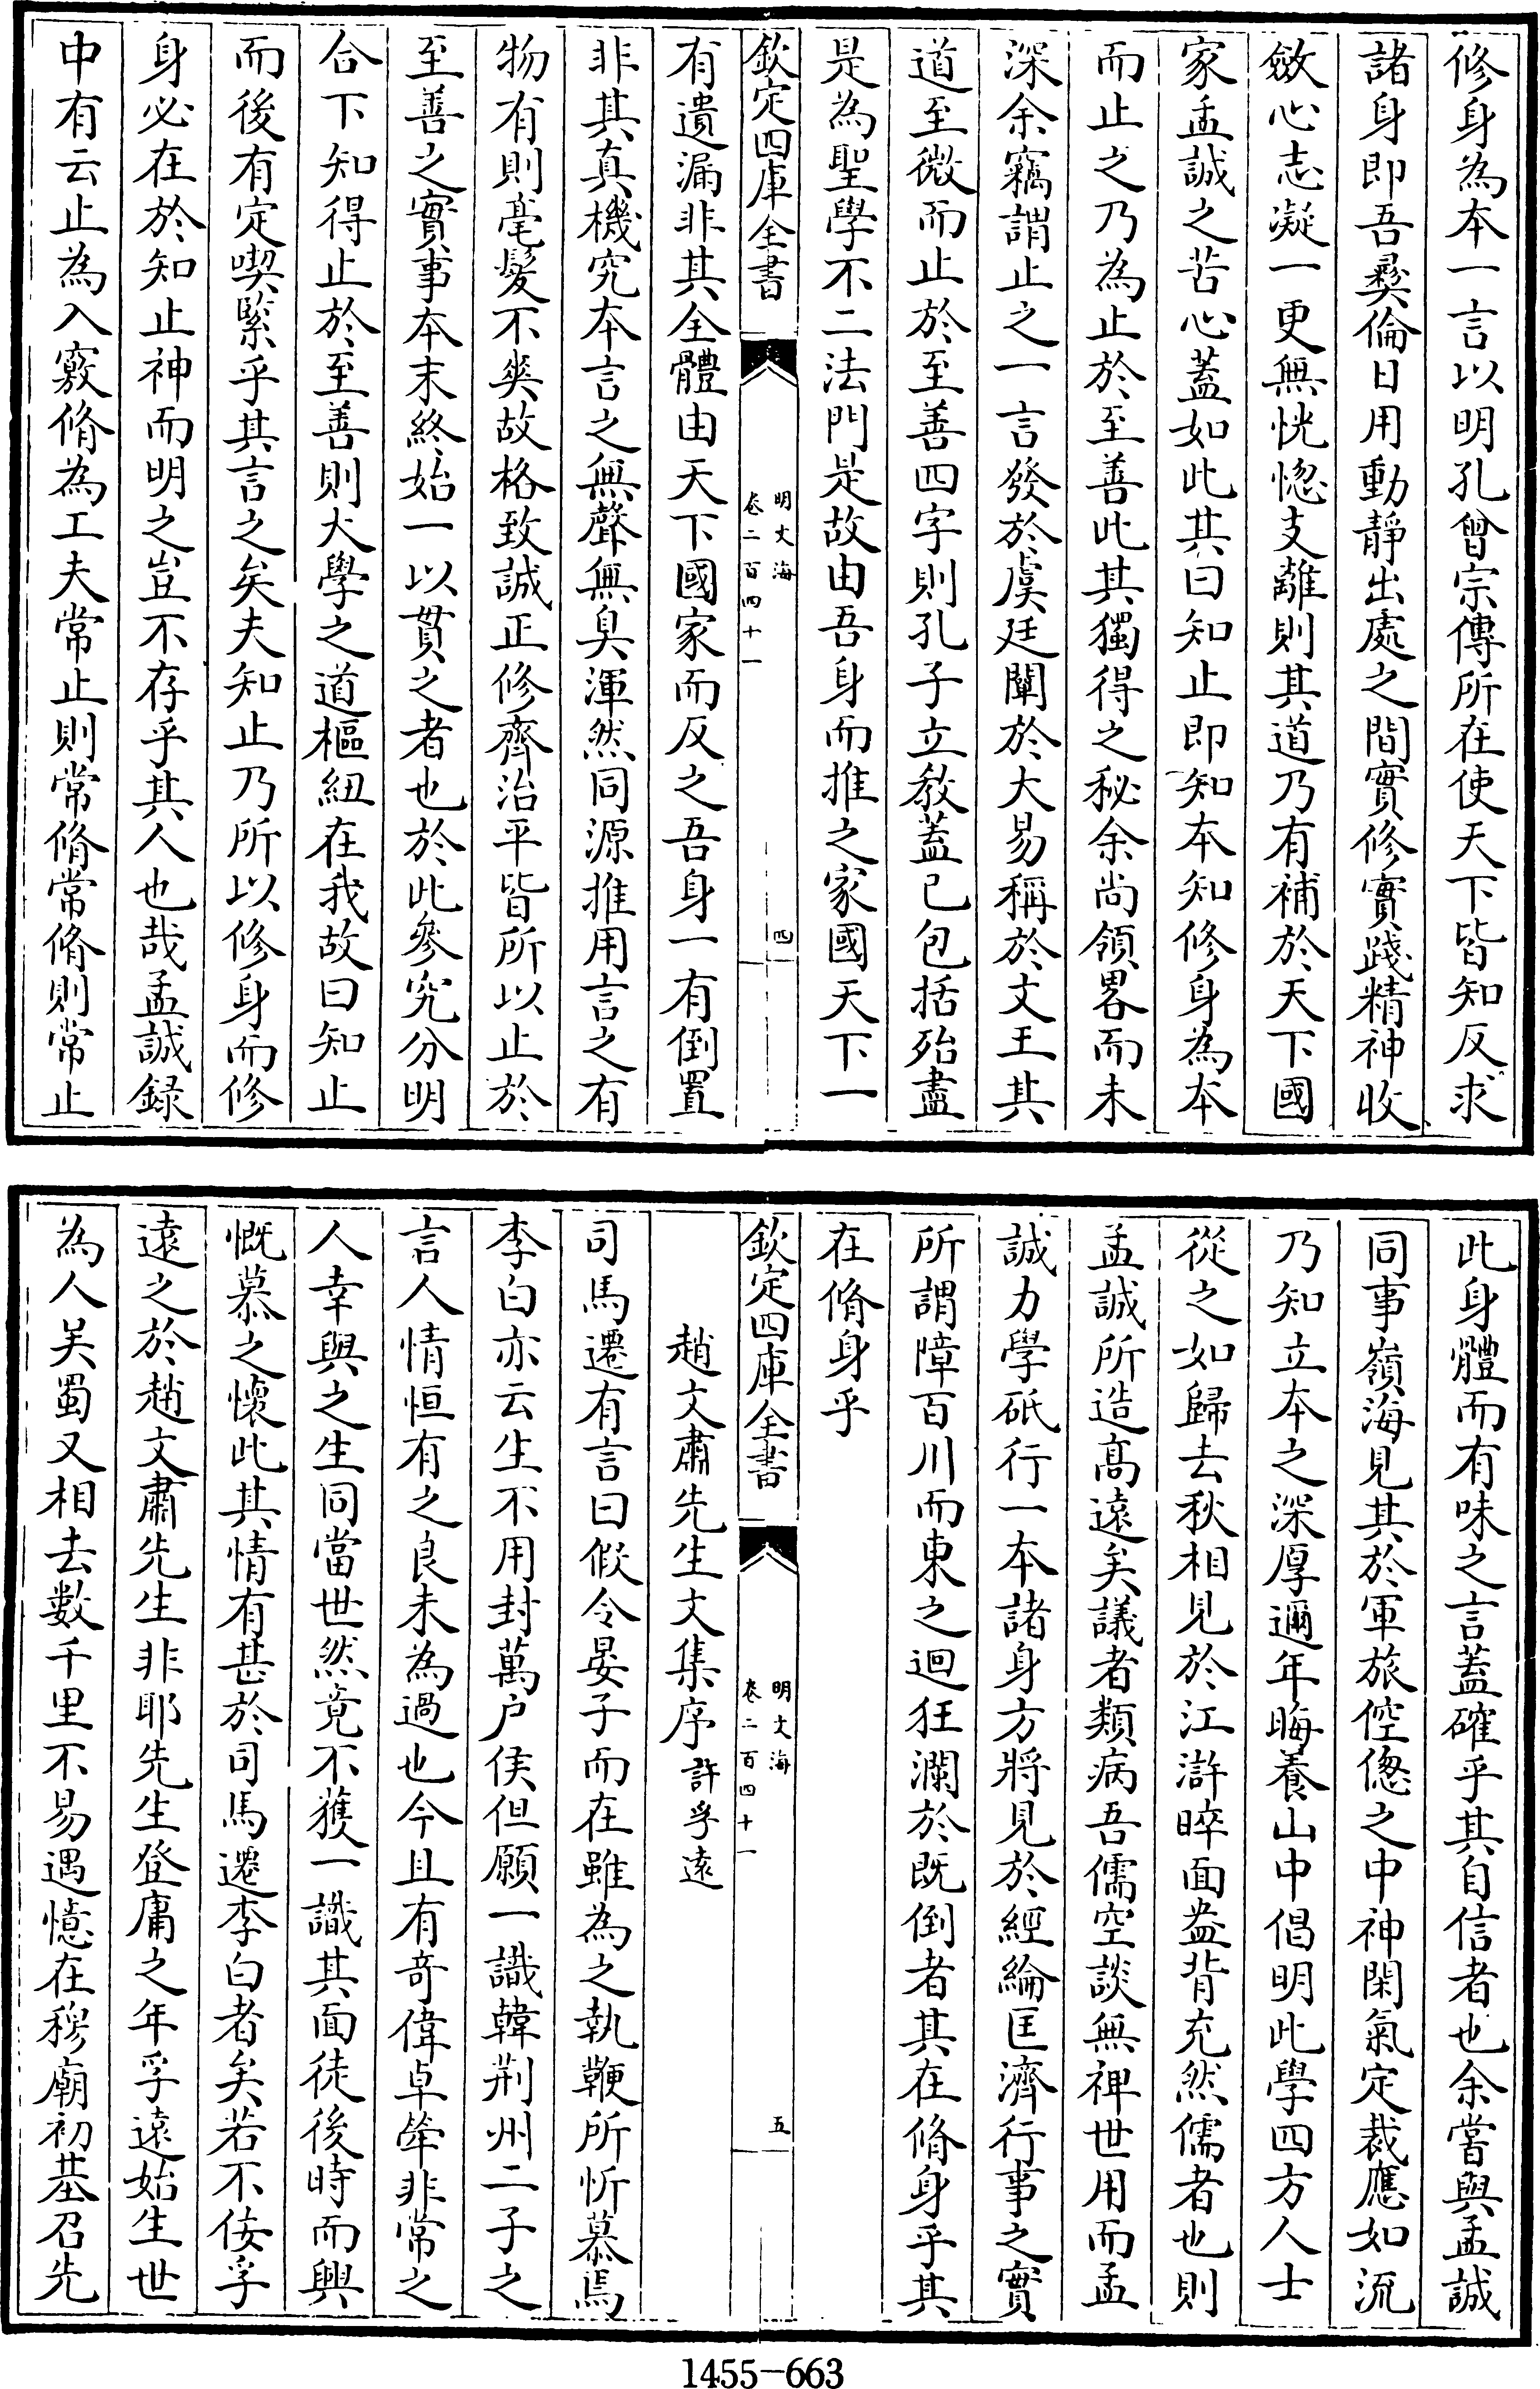 修身為本一言以明孔曾宗傳所在使天下皆知反求
諸身即吾彛倫日用動靜出處之間實修實踐精神收
斂心志凝一更無恍惚支離則其道乃有補於天下國
家孟誠之苦心蓋如此其曰知止即知本知修身為本
而止之乃為止於至善此其獨得之秘余尚領畧而未
深余竊謂止之一言發於虞廷闡於大易稱於文王其
道至微而止於至善四字則孔子立教蓋已包括殆盡
是為聖學不二法門是故由吾身而推之家國天下一
欽定四庫全書
明文海
卷二百四十一
四
有遺漏非其全體由天下國家而反之吾身一有倒置
非其真機究本言之無聲無臭渾然同源推用言之有
物有則毫髮不爽故格致誠正修齊治平皆所以止於
至善之實事本末終始一以貫之者也於此參究分明
合下知得止於至善則大學之道樞紐在我故曰知止
而後有定喫緊乎其言之矣夫知止乃所以修身而修
身必在於知止神而明之豈不存乎其人也哉孟誠録
中有云止為入竅脩為工夫常止則常脩常脩則常止
此身體而有味之言蓋確乎其自信者也余嘗與孟誠
同事嶺海見其於軍旅倥偬之中神閑氣定裁應如流
乃知立本之深厚邇年晦養山中倡明此學四方人士
從之如歸去秋相見於江滸睟面盎背充然儒者也則
孟誠所造髙遠矣議者類病吾儒空談無裨世用而孟
誠力學砥行一本諸身方將見於經綸匡濟行事之實
所謂障百川而東之迴狂瀾於既倒者其在脩身乎其
在脩身乎
欽定四庫全書
明文海
卷二百四十一
五
趙文肅先生文集序 許孚遠
司馬遷有言曰假令晏子而在雖為之執鞭所忻慕焉
李白亦云生不用封萬户侯但願一識韓荆州二子之
言人情恒有之良未為過也今且有奇偉卓犖非常之
人幸與之生同當世然竟不獲一識其面徒後時而興
慨慕之懐此其情有甚於司馬遷李白者矣若不佞孚
遠之於趙文肅先生非耶先生登庸之年孚遠始生世
為人吴蜀又相去數千里不易遇憶在穆廟初基召先
1455-663